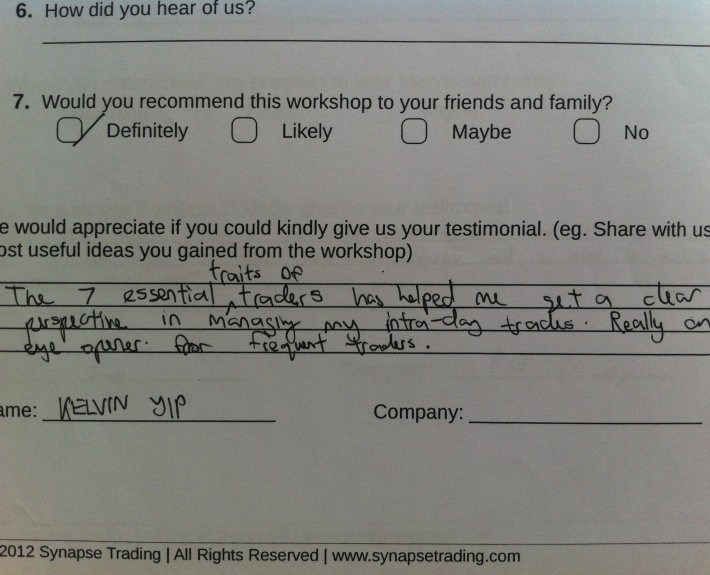 6. How did you hear of us?
7. Would you recommend this workshop to your friends and family?
Definitely Likely Maybe No
e would appreciate if you could kindly give us your testimonial. (eg. Share with us
ost useful ideas you gained from the workshop)
traits of
The 7 essential ^ traders has helped me get a clear
perspective in managing my intra-day trades. Really an
eye opener. For frequent traders.
ame: KELVIN YIP Company:
2012 Synapse Trading | All Rights Reserved | www.synapsetrading.com